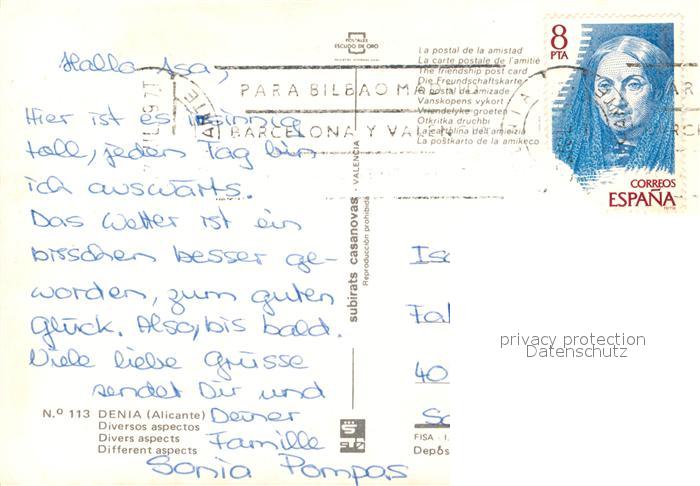 Hallo Asa,
Hier ist es wahnsinnig
toll, jeden Tag bin
ich auswärts.
Das Wetter ist ein
bisschen besser ge-
worden, zum guten
Glück. Also, bis bald.
Viele liebe Grüsse
sendet Dir und
Deiner
Familie
Sonia Pompas
POSTALES
ESCUDO DE ORO
La postal de la amistad
La carte postale de l'amitié
The friendship post card
Die Freundschaftskarte
postal da amizade
Vanskopens vykort
Vriendelijke groeten
Otkritka druchbi
La cartolina dell'amicizia
La poŝtkarto de la amikeco
PARA BILBAO
BARCELONA Y VALEN
8
PTA
CORREOS
ESPAÑA
subirats casanovas - VALENCIA
Reproducción prohibida
N.º 113 DENIA (Alicante)
Diversos aspectos
Divers aspects
Different aspects
40
FISA - I.
Depós
privacy protection
Datenschutz